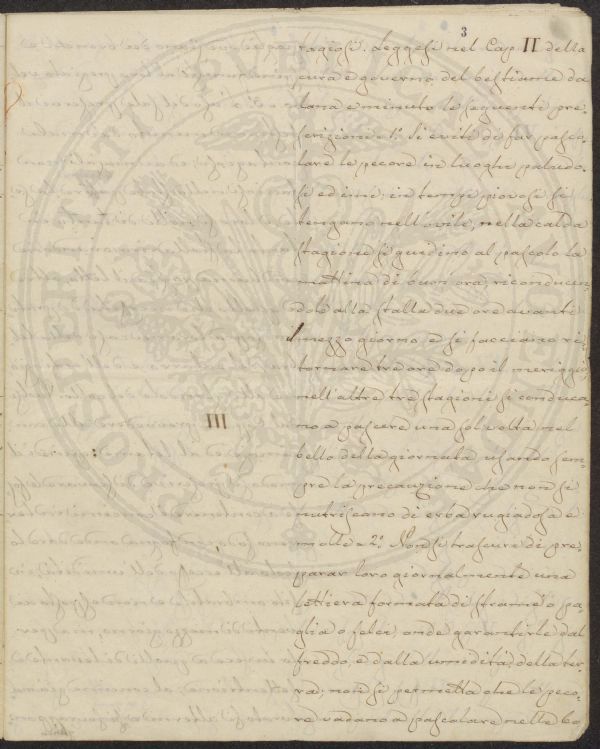 3
tagiosi. Leggesi nel Cap. II della
cura e governo del bestiame da
lana e minuto le seguenti pre=
scrizioni: 1.º Si eviti di far pasco=
lare le pecore in luoghi paludo=
si ed imi; in tempi piovosi si
tengano nell'ovile; nella calda
stagione si guidino al pascolo la
mattina di buon'ora, riconducen=
dole alla stalla due ore avanti
mezzo giorno e si facciano ri=
tornare tre ore dopo il meriggio;
nell'altre tre stagioni si conduca=
no a pascere una sol volta nel
bello della giornata, usando sem=
pre la precauzione che non si
nutriscano di erba rugiadosa e
molle. 2.º Non si trascuri di pre=
parar loro giornalmente una
lettiera formata di strame o pa=
glia o felci, onde garantirle dal
freddo, e dalla umidità della ter=
ra; non si permetta che le peco=
re vadano a pascolare nelle bo=
III
PROSPERITATI PUBLICAE